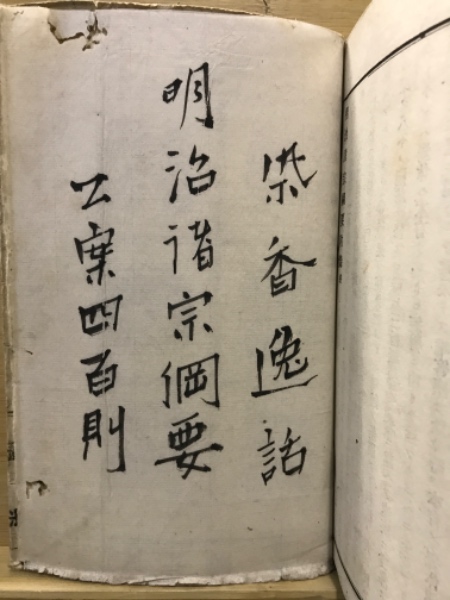 染香逸話
明治諸宗綱要
公案四百則